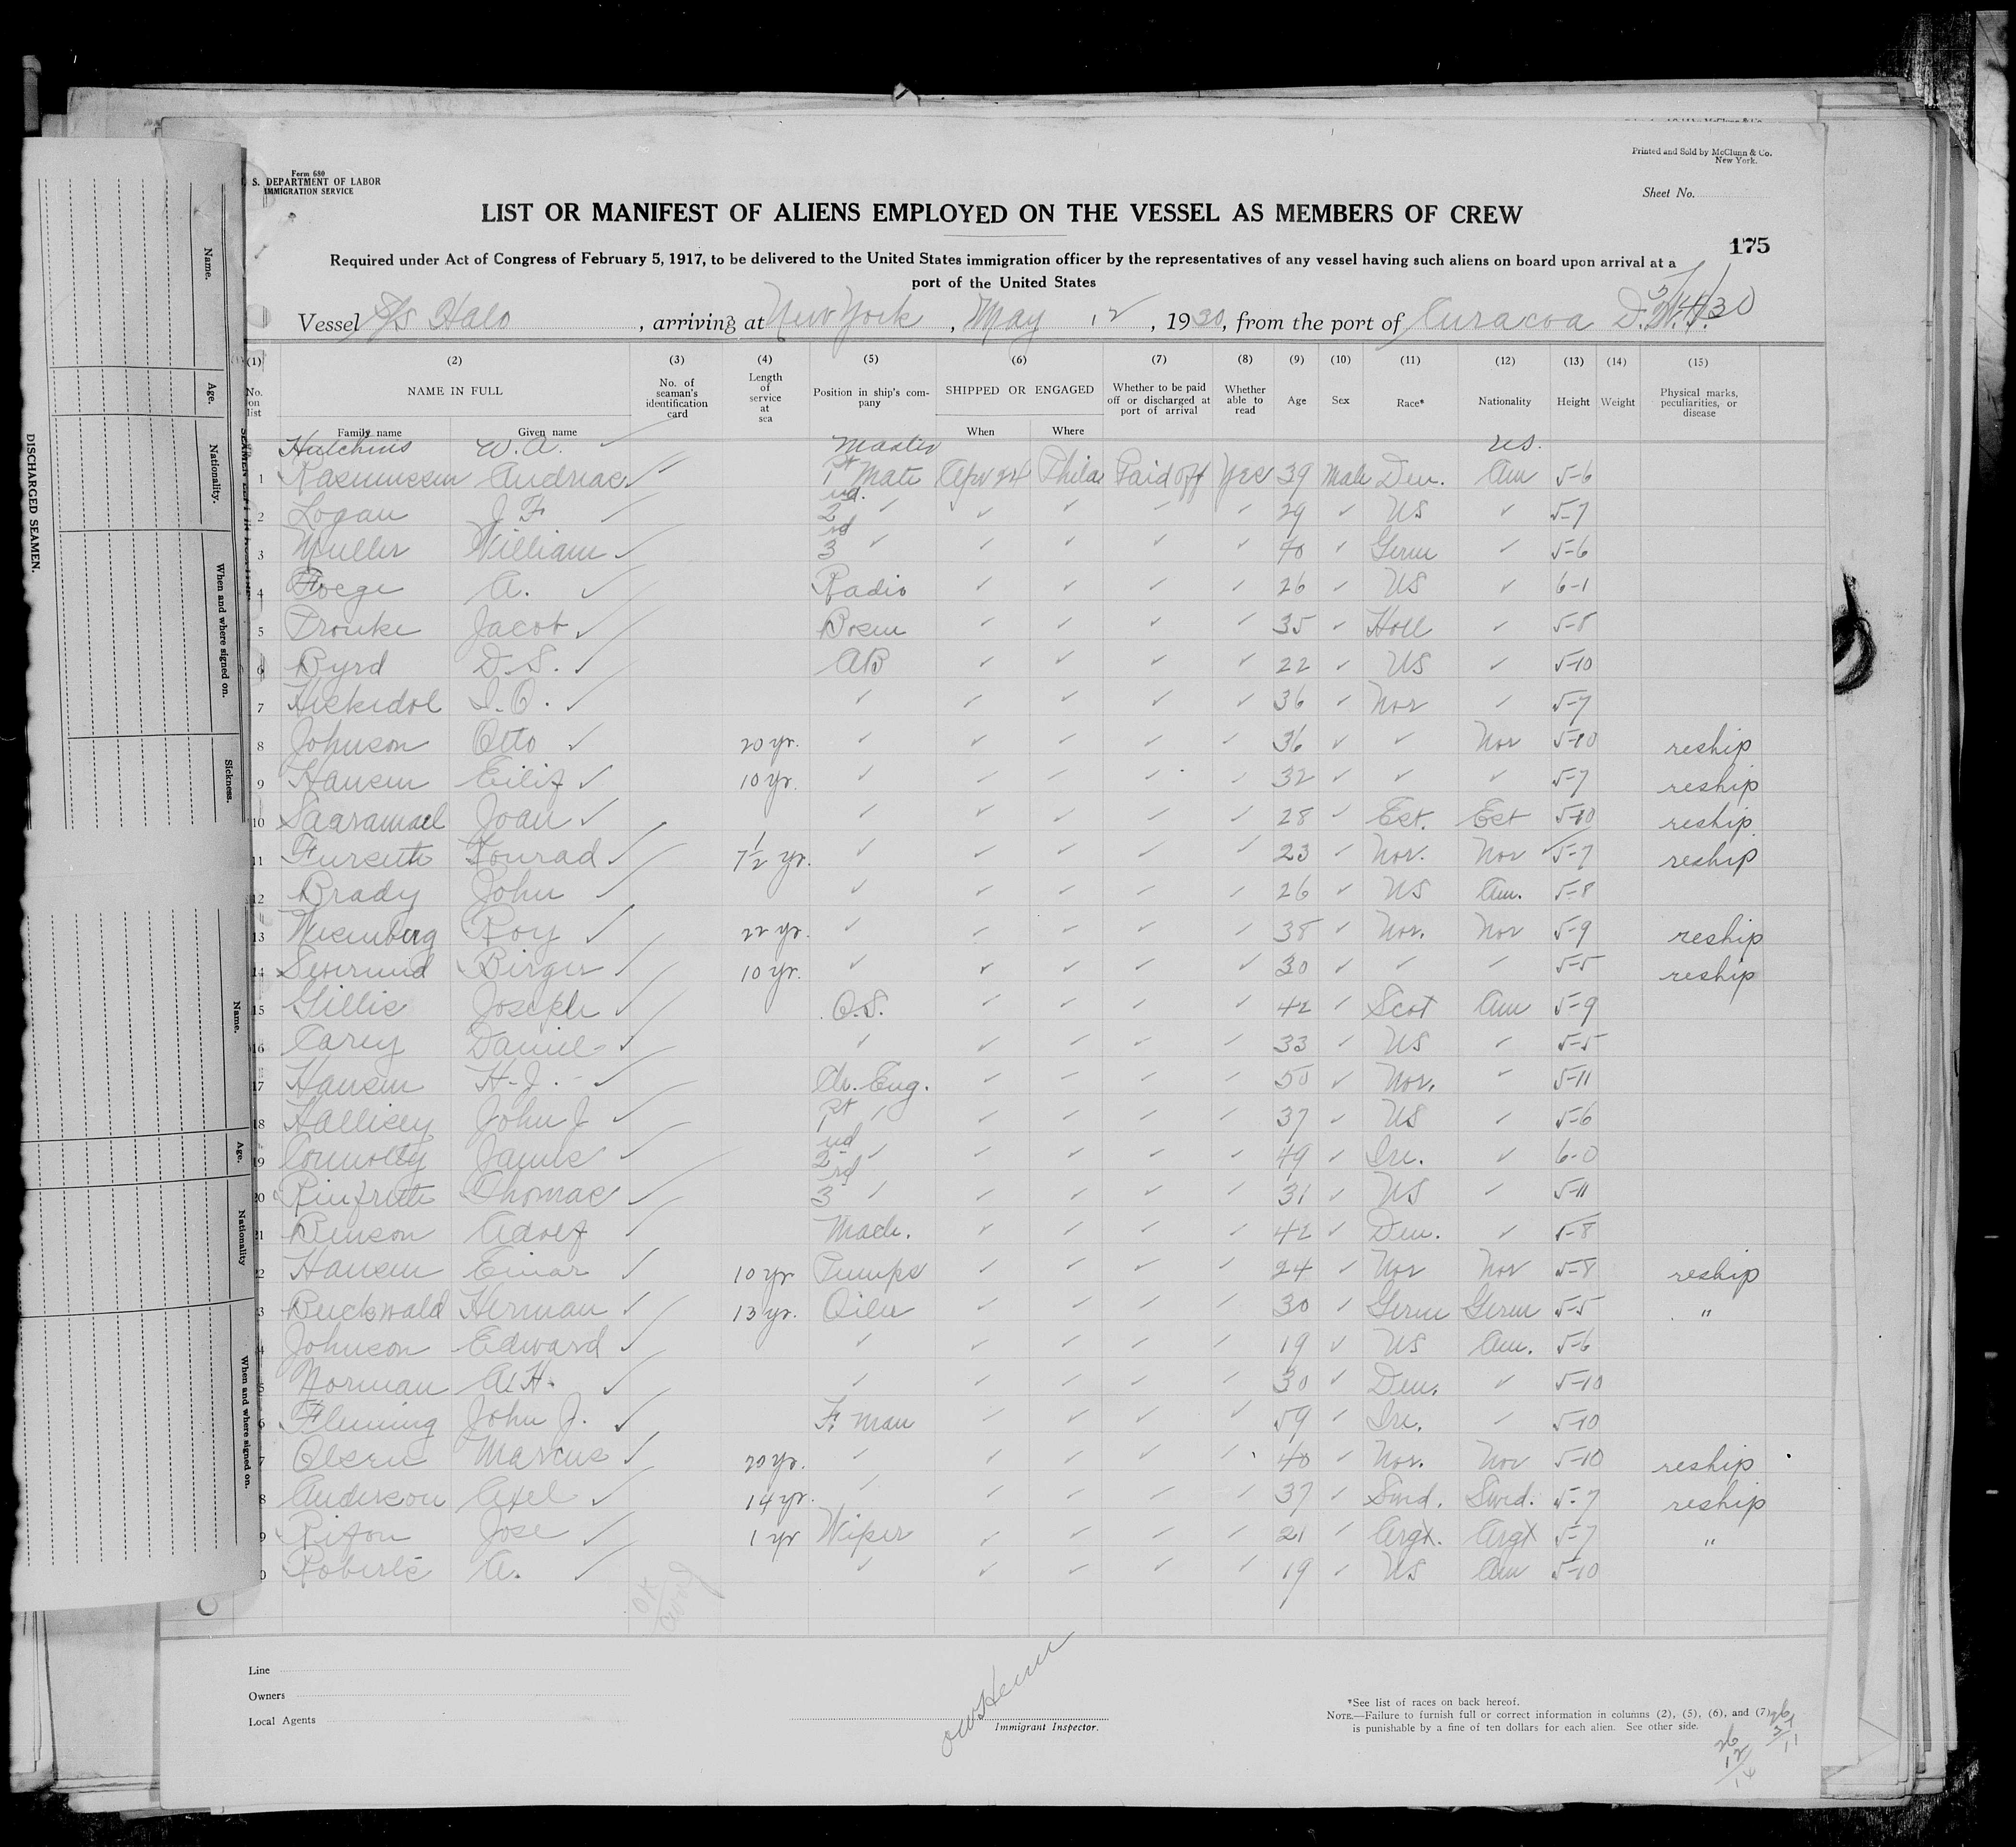 Printed and Sold by McClunn & Co.
New York.
Form 680
S. DEPARTMENT OF LABOR
IMMIGRATION SERVICE
Sheet No.
LIST OR MANIFEST OF ALIENS EMPLOYED ON THE VESSEL AS MEMBERS OF CREW
175
Required under Act of Congress of February 5, 1917, to be delivered to the United States immigration officer by the representatives of any vessel having such aliens on board upon arrival at a
port of the United States
Vessel S/S Halo, arriving at New York, May 12, 1930, from the port of Curacoa D.W.I.
(1) (2) (3) (4) (5) (6) (7) (8) (9) (10) (11) (12) (13) (14) (15)
No. on list NAME IN FULL No. of seaman's identification card Length of service at sea Position in ship's company SHIPPED OR ENGAGED Whether to be paid off or discharged at port of arrival Whether able to read Age Sex Race* Nationality Height Weight Physical marks, peculiarities, or disease
Family name Given name When Where
Hutchins W. A. Master US.
1 Rasmussen Andreas ✓ 1st Mate Apr 24 Phila Paid off Yes 39 Male Den. Am 5-6
2 Logan J F ✓ 2nd ✓ ✓ ✓ ✓ ✓ 29 ✓ US ✓ 5-7
3 Muller William ✓ 3rd ✓ ✓ ✓ ✓ ✓ 40 ✓ Germ ✓ 5-6
4 Foege A. ✓ Radio ✓ ✓ ✓ ✓ 26 ✓ US ✓ 6-1
5 Pronke Jacob ✓ Bosun ✓ ✓ ✓ ✓ 35 ✓ Holl ✓ 5-8
6 Byrd D. S. ✓ AB ✓ ✓ ✓ ✓ 22 ✓ US ✓ 5-10
7 Hickidol I. O. ✓ ✓ ✓ ✓ ✓ ✓ 36 ✓ Nor ✓ 5-7
8 Johnson Otto ✓ 20 yr. ✓ ✓ ✓ ✓ ✓ 36 ✓ ✓ Nor 5-10 reship
9 Hansen Eilif ✓ 10 yr. ✓ ✓ ✓ ✓ ✓ 32 ✓ ✓ ✓ 5-7 reship
10 Saaramael Joan ✓ ✓ ✓ ✓ ✓ ✓ 28 ✓ Est. Est 5-10 reship
11 Furseth Konrad ✓ 7½ yr. ✓ ✓ ✓ ✓ ✓ 23 ✓ Nor. Nor 5-7 reship
12 Brady John ✓ ✓ ✓ ✓ ✓ ✓ 26 ✓ US Am. 5-8
13 Wesenberg Roy ✓ 22 yr. ✓ ✓ ✓ ✓ ✓ 38 ✓ Nor. Nor 5-9 reship
14 Severund Birger ✓ 10 yr. ✓ ✓ ✓ ✓ ✓ 30 ✓ ✓ ✓ 5-5 reship
15 Gillis Joseph ✓ O.S. ✓ ✓ ✓ ✓ 42 ✓ Scot Am 5-9
16 Carey Daniel ✓ ✓ ✓ ✓ ✓ ✓ 33 ✓ US ✓ 5-5
17 Hansen H. J. ✓ Ch. Eng. ✓ ✓ ✓ ✓ 50 ✓ Nor. ✓ 5-11
18 Hallisey John J ✓ 1st ✓ ✓ ✓ ✓ ✓ 37 ✓ US ✓ 5-6
19 Connolly James ✓ 2nd ✓ ✓ ✓ ✓ ✓ 49 ✓ Ire. ✓ 6-0
20 Rinfrette Thomas ✓ 3rd ✓ ✓ ✓ ✓ ✓ 31 ✓ US ✓ 5-11
21 Benson Adolf ✓ Mach. ✓ ✓ ✓ ✓ 42 ✓ Den. ✓ 5-8
2 Hansen Einar ✓ 10 yr Pumps ✓ ✓ ✓ ✓ 24 ✓ Nor Nor 5-8 reship
3 Buckwald Herman ✓ 13 yr. Oiler ✓ ✓ ✓ ✓ 30 ✓ Germ Germ 5-5 "
4 Johnson Edward ✓ ✓ ✓ ✓ ✓ ✓ 19 ✓ US Am. 5-6
5 Norman A. H. ✓ ✓ ✓ ✓ ✓ ✓ 30 ✓ Den. ✓ 5-10
6 Fleming John J. ✓ F. man ✓ ✓ ✓ ✓ 59 ✓ Ire. ✓ 5-10
7 Olsen Marcus ✓ 20 yr. ✓ ✓ ✓ ✓ ✓ 40 ✓ Nor. Nor 5-10 reship
8 Anderson Axel ✓ 14 yr. ✓ ✓ ✓ ✓ ✓ 37 ✓ Swed. Swed. 5-7 reship
9 Rifon Jose ✓ 1 yr Wiper ✓ ✓ ✓ ✓ 21 ✓ Argt. Argt 5-7 "
0 Roberts A. ✓ ✓ ✓ ✓ ✓ ✓ 19 ✓ US Am 5-10
Line
Owners
Local Agents
Immigrant Inspector.
*See list of races on back hereof.
NOTE.—Failure to furnish full or correct information in columns (2), (5), (6), and (7)
is punishable by a fine of ten dollars for each alien. See other side.
26
12
14
DISCHARGED SEAMEN.
Name.
Age.
Nationality.
When and where signed on.
Sickness.
Name.
Age.
Nationality
When and where signed on.